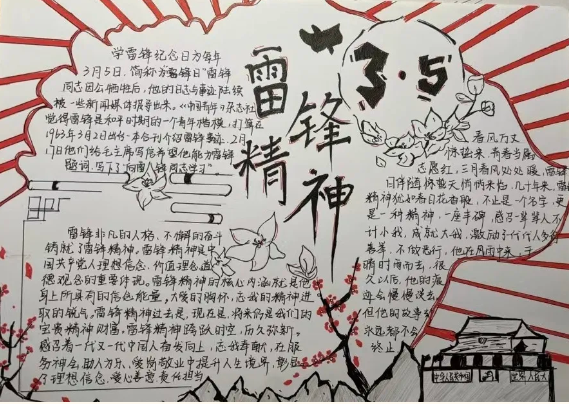 学雷锋纪念日为每年
3月5日，简称为"雷锋日"雷锋
同志因公牺牲后，他的日志与事迹陆续
被一些新闻媒体报导出来。《中国青年》杂志社
觉得雷锋是和平时期的一个青年楷模，打算在
1963年3月2日出一本合刊介绍雷锋事迹。2月
17日他们给毛主席写信希望他能为雷锋
题词，写下了"向雷锋同志学习"
雷锋精神
3·5
春风万丈
惊蛰来，
三月春风处处暖，雷锋
日伴随惊蛰天悄俩来临，几十年来，雷锋
精神犹如春日花香般，不止是一个名字，更
是一种精神，一座丰碑，感召华
计小我，成就大我，激励了代代人多行
善举，不做恶行，他在风雨中来，于
晴时而去，很
久以后，他的痕
迹会慢慢淡去
但他的故事
永远都不会
终止
雷锋非凡的人格，不懈的奋斗
铸就了雷锋精神。雷锋精神是中
国共产党人理想信念，价值理念道
德观念的重要体现。雷锋精神的核心内涵就是他
身上所具有的信念能量。大爱的胸怀，忘我的精神进
取的锐气。雷锋精神过去是，现在是，将来仍是我们的
宝贵精神财富。雷锋精神跨跃时空，历久弥新。
感召着一代又一代中国人奋发向上，忘我奉献，在服
务神会，助人为乐，爱岗敬业中提升人生境界，彰显
了理想信念，爱心善意责任担当